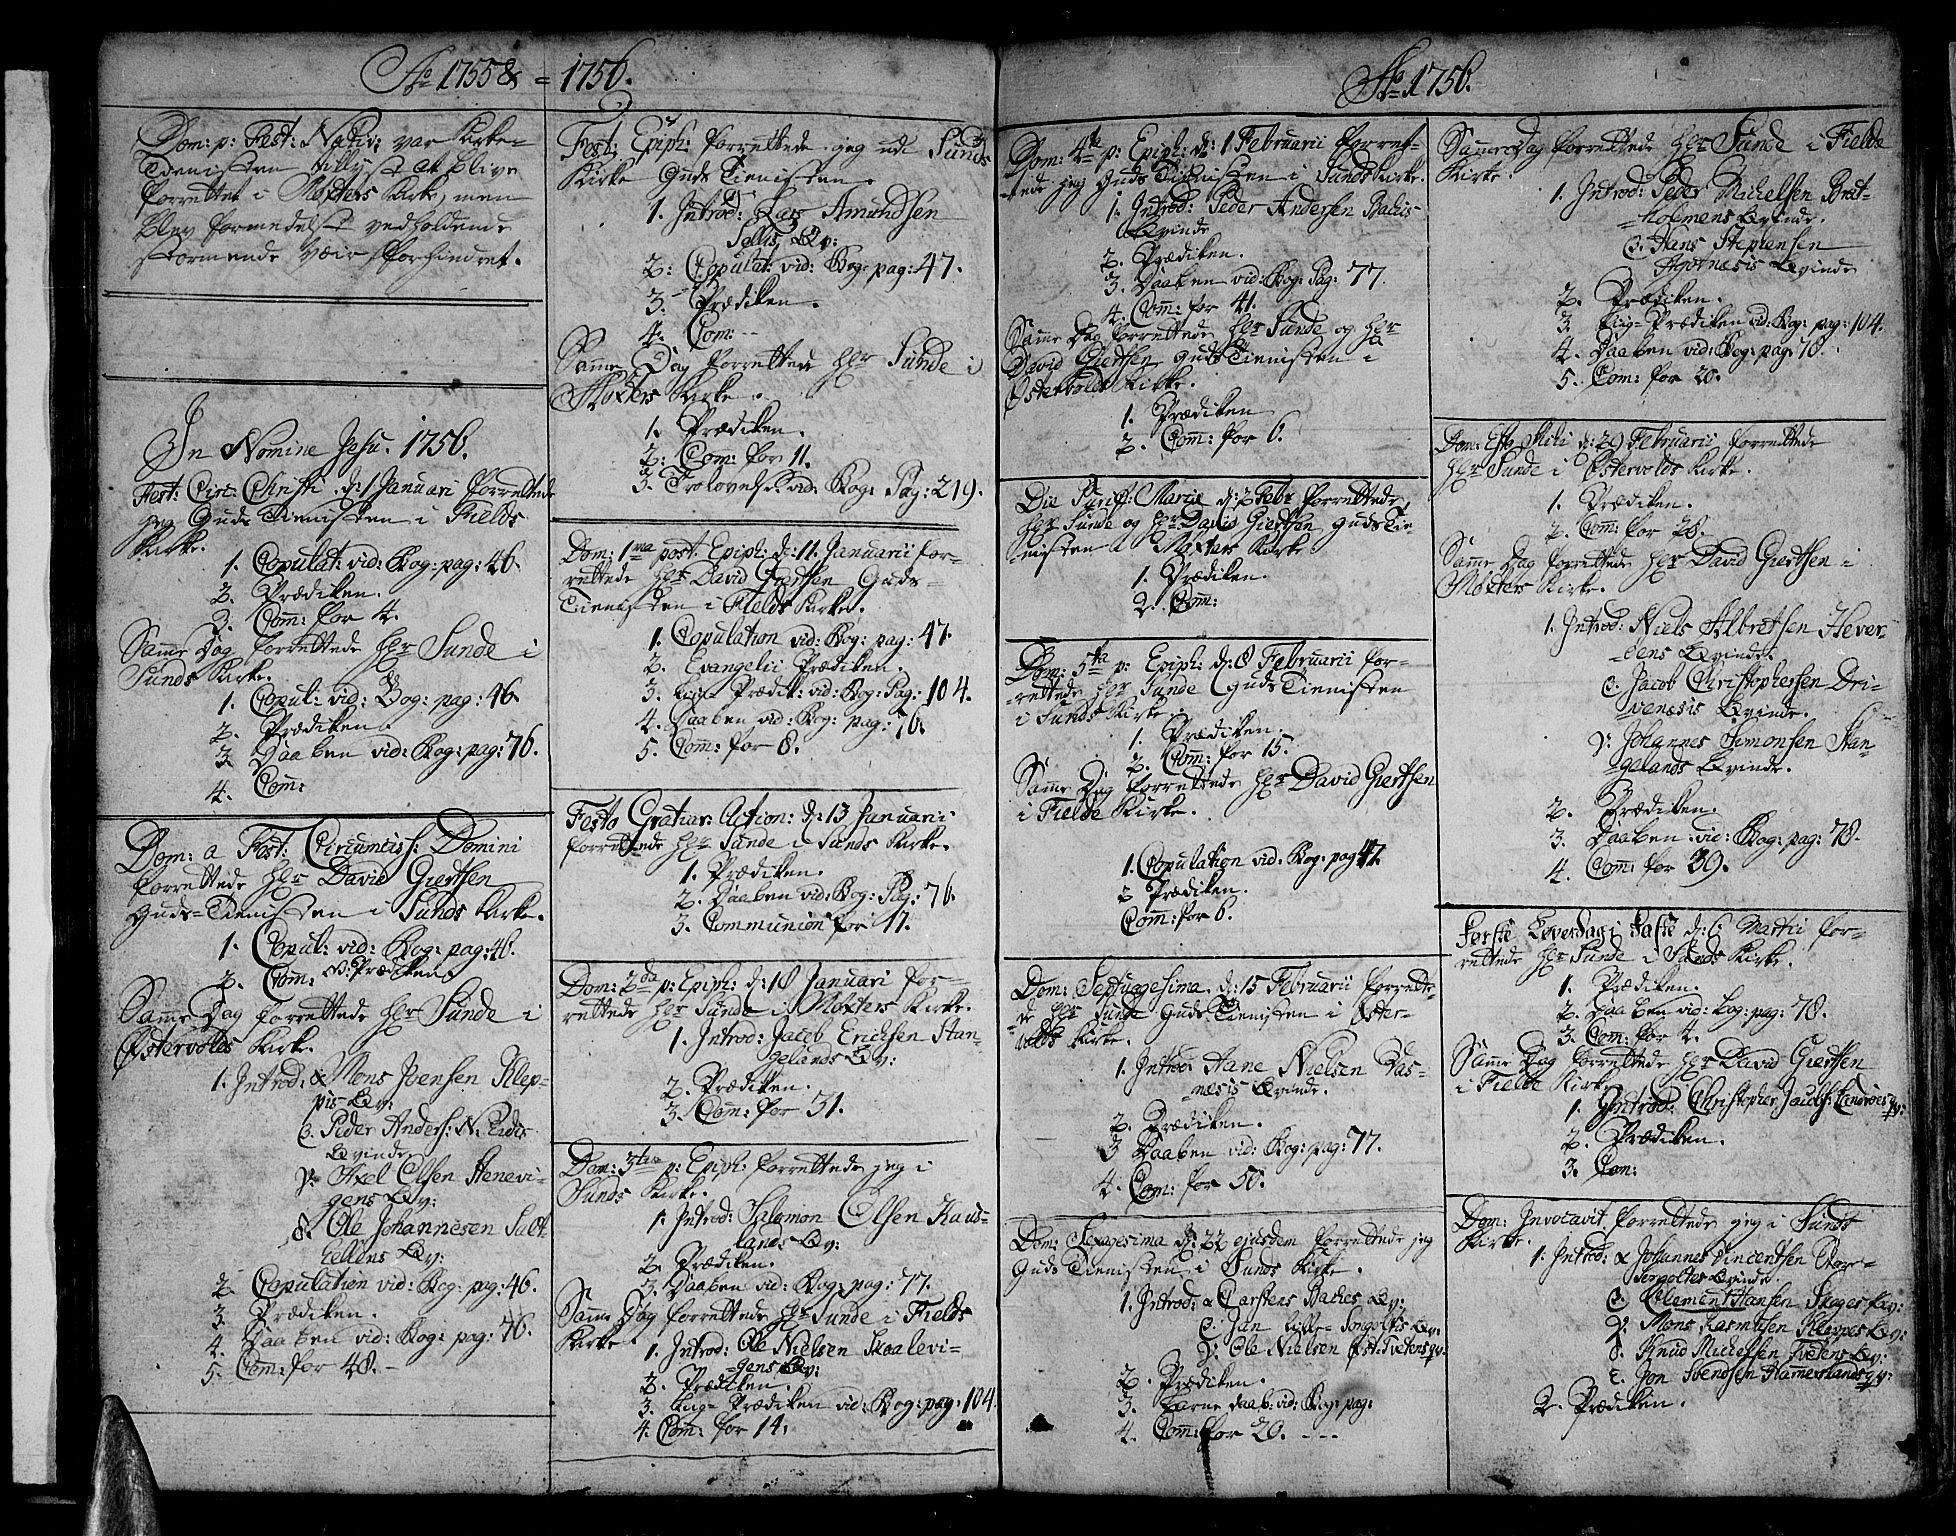 Ao 1755 & = 1756.
Dom: p: Fest: Nativ: var Kirke-
Tienisten tillyst at blive
forrettet i Møsters Kirke, men
blev formedelst vedholdende
stormende Væir forhindret.
In Nomine Jesu. 1756.
Fest: Circ: Christi d: 1 Januari forrettede
jeg Guds Tienisten i Fields
Kirke.
1. Copulat: vid: Bog: pag: 46.
2. Prædiken.
3. Com: for 4.
Samme Dag forrettede Hr Sunde i
Sunds Kirke.
1. Copul: vid: Bog: pag: 46.
2. Prædiken.
3. Daaben vid: Bog: pag: 76.
4. Com:
Dom: a Fest: Circumciss: Domini
forrettede Hr David Giertsen
Guds-Tienisten i Sunds Kirke.
1. Copul: vid: Bog: pag: 48.
2. Com: Prædiken
Samme Dag forrettede Hr Sunde i
Østervolds Kirke.
1. Introd: α Mons Ivensen Klep-
pis Qv:
β. Peder Anders: N.
Qvinde
γ. Axel Olsen Stenevi-
gens Qv:
δ. Ole Johannesen Salt-
hellens Qv:
2. Copulation vid: Bog: pag: 46.
3. Prædiken.
4. Daaben vid: Bog: pag: 76.
5. Com: for 48.
Fest: Epiph: forrettede jeg udi Sunds
Kirke Guds Tienisten.
1. Introd: Lars Amundsen
Qv:
2. Copulat: vid: Bog: pag: 47.
3. Prædiken.
4. Com: --
Samme Dag forrettede Hr Sunde i
Møxters Kirke.
1. Prædiken.
2. Com: for 11.
3. Trolovels: vid: Bog: Pag: 219.
Dom: 1ma post. Epiph: d: 11. Januarii for-
rettede Hr David Giertsen Guds-
Tienisten i Fields Kirke.
1. Copulation vid: Bog: pag: 47.
2. Evangelii Prædiken.
3. Liig Prædik: vid: Bog: Pag: 104.
4. Daaben vid: Bog: pag: 76.
5. Com: for 8.
Festo Gratiar: Action: d: 13 Januarii
forrettede Hr Sunde i Sunds Kirke.
1. Prædiken.
2. Daaben vid: Bog: Pag: 76.
3. Communion for 17.
Dom: 2da p: Epiph: d: 18 Januari for-
rettede Hr Sunde i Møxters Kirke.
1. Introd: Jacob Erichsen Stan-
gelands Qv:
2. Prædiken.
3. Com: for 31.
Dom: 3tia p: Epiph: forrettede jeg i
Sunds Kirke.
1. Introd: Salomon Olsen Haus-
lands Qv:
2. Prædiken.
3. Daaben vid: Bog: pag: 77.
Samme Dag forrettede Hr Sunde i Fields
Kirke
1. Introd: Ole Nielsen Skaalevi-
gens Qv:
2. Prædiken.
3. Liig-Prædiken vid: Bog: pag: 104.
4. Com: for 14.
Ao 1756.
Dom: 4ta p: Epiph: d: 1 Februarii forret-
tede jeg Guds Tienisten i Sunds Kirke.
1. Introd: Peder Andersen Bakis
Qvinde
2. Prædiken.
3. Daaben vid: Bog: Pag: 77.
4. Com: for 41.
Samme Dag forrettede Hr Sunde og Hr
David Giertsen Guds Tienisten i
Østervolds Kirke.
1. Prædiken
2. Com: for 6.
Die Purif: Mariæ d: 2 Febr forrettede
Hr Sunde og Hr David Giertsen Guds Tie-
nisten i Møxters Kirke
1. Prædiken.
2. Com:
Dom: 5ta p: Epiph: d: 8 Februarii for-
rettede Hr Sunde Guds Tienisten
i Sunds Kirke.
1. Prædiken.
2. Com: for 15.
Samme Dag forrettede Hr David Giertsen
i Fields Kirke.
1. Copulation vid: Bog: pag 47.
2 Prædiken.
Com: for 6.
Dom: Septuagesima d: 15 Februarii forrette-
de Hr Sunde Guds Tienisten i Øster-
volds Kirke.
1. Introd: Hane Nielsen Vas-
nesis Qvinde.
2. Prædiken.
3 Daaben vid: Bog: pag: 77.
4. Com: for 50.
Dom: Sexagesima d: 22 ejusdem forrettede jeg
Guds Tienisten i Sunds Kirke.
1. Introd: α Carstens Bakies Qv:
β. Jan Lille-Songolts Qv:
γ: Ole Nielsen Øst. Tvetens qv:
2. Prædiken.
3. Barne daab: vid: Bog: pag:
4. Com: for 20. ---
Samme Dag forrettede Hr Sunde i Fields
Kirke.
1. Introd: Peder Michelsen Brat-
holmens Qvinde.
β. Hans Stephensen
Qvinde
2. Prædiken.
3. Liig-Prædiken vid: Bog: pag: 104.
4. Daaben vid: Bog: pag: 78.
5. Com: for 20.
Dom: Esto Mihi d: 29 Februarii forrettede
Hr Sunde i Østervolds Kirke.
1. Prædiken.
2. Com: for 28.
Samme Dag forrettede Hr David Giertsen i
Møxters Kirke.
1. Introd: Niels Albretsen Hever-
-ens Qvinde.
β. Jacob Christophersen Dri-
venesis Qvinde.
γ: Johannes Simonsen Stan-
gelands Qvinde.
2. Prædiken.
3. Daaben vid: Bog: pag: 78.
4. Com: for 39.
Første Løverdag i Faste d: 6 Martii for-
rettede Hr Sunde i Sunds Kirke.
1. Prædiken.
2. Daaben vid: Bog: pag: 78.
3. Com: for 4.
Samme Dag forrettede Hr David Giertsen
i Fields Kirke
1. Introd: Christopher Jacobs: Landroes qv:
2. Prædiken.
3. Com:
Dom: Invocavit forrettede jeg i Sunds
Kirke.
1. Introd: α Johannes Vincentsen Store-
Songoltes Qvinde
β. Clement Hansen Skoges Qv:
γ. Mons Rasmusen Kleppes Qv:
δ. Knud Michelsen Tvetens Qv:
ε. Jon Svendsen Hamerslands qv:
2. Prædiken.